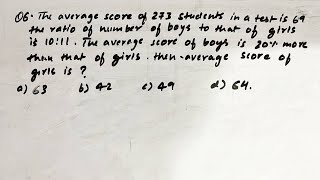 Q6. The average score of 273 students in a test is 69
the ratio of number of boys to that of girls
is 10:11. The average score of boys is 20% more
than that of girls. then average score of
girls is?
a) 63 b) 42 c) 49 d) 64.